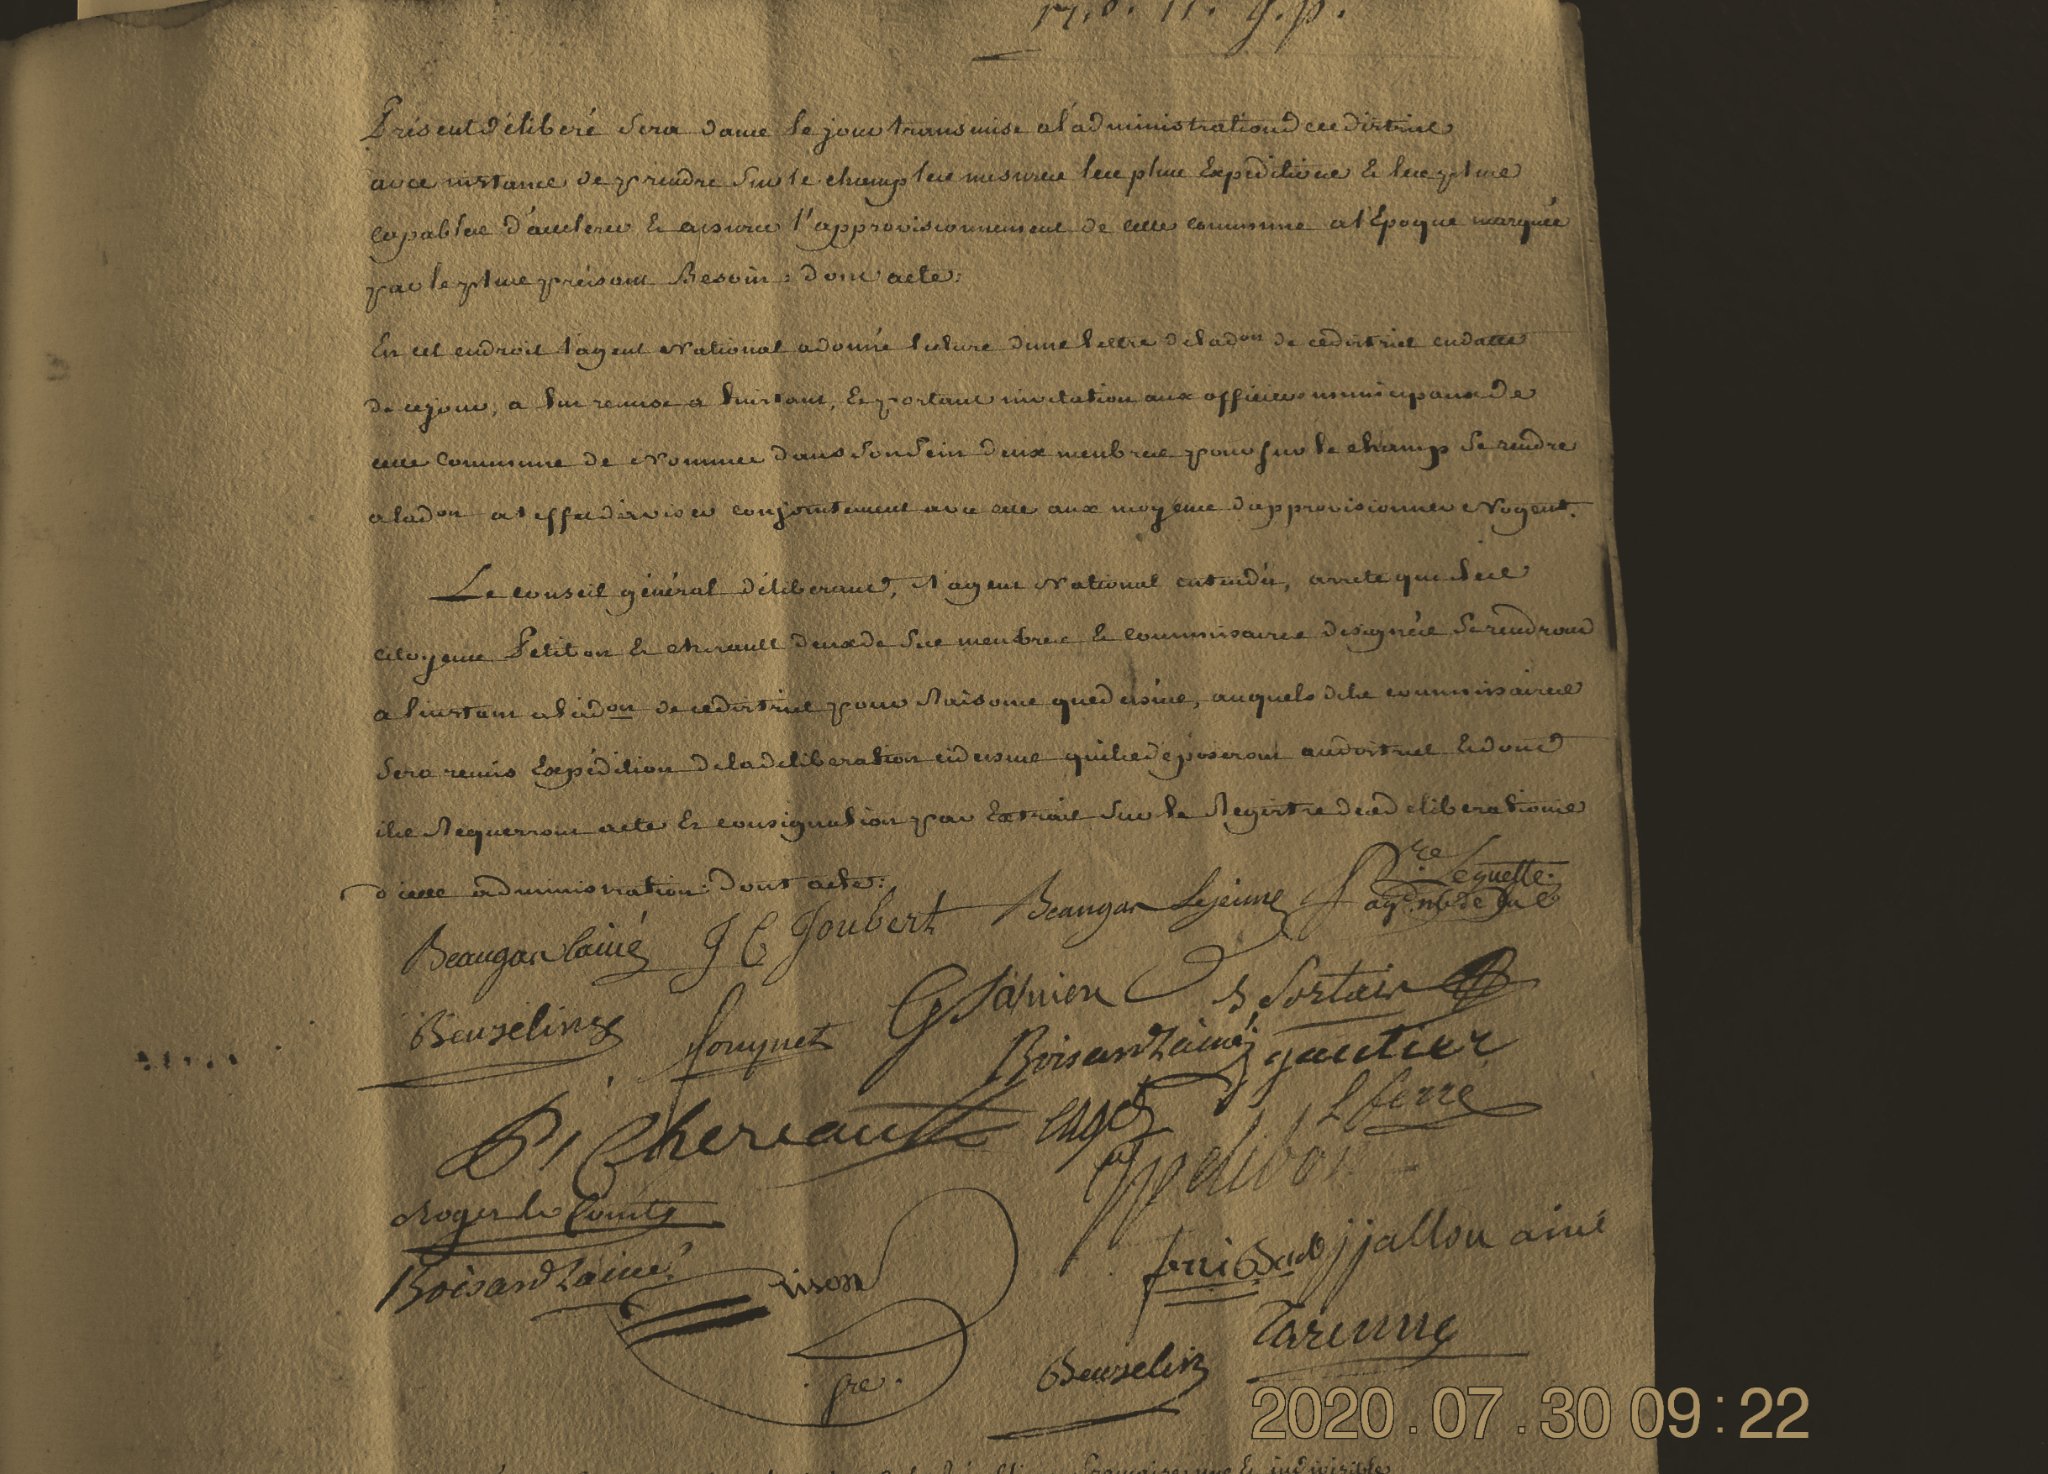 Présent délibéré sera dans le jour transmise a l'administration de ce district
avec instance de prendre sur le champ les mesures les plus Expeditives & les plus
capables d'accélérer & assurer l'approvisionnement de cette commune a l'Epoque marquée
par le plus préssant Besoin : dont acte :
En cet endroit l'agent National a donné lecture d'une lettre de la don de ce district en datte
de ce jour, a lui remise a l'instant, & portant invitation aux officiers municipaux de
cette Commune de Nommer dans son sein deux membres pour sur le champ se rendre
a la don a l'effet d'aviser conjointement avec elle aux moyens d'approvisionner Nogent.
Le conseil général déliberant, l'agent National entendu, arrete que les
citoyens Petition & cheriault deux de ses membres & commissaires designés se rendront
a l'instant a la don de ce district pour Raisons que dessus, auquels dits commissaires
sera remis Expédition de la deliberation ci dessus qu'ils déposeront au district & dont
ils Requerront acte & consignation par Extrait sur le Registre des déliberations
d'icelle administration : Dont acte :
Beaugar lainé J C Joubert Beaugar Lejeune Lequette
agt nal
Beuzelin Fouquet G Jahier Sortais
Boisard Lainé gautier
P. Cheriault L ferré
Roger le Comte
Boisard Lainé jjallou ainé
Beuzelin Tarenne
gre.
2020.07.30 09:22